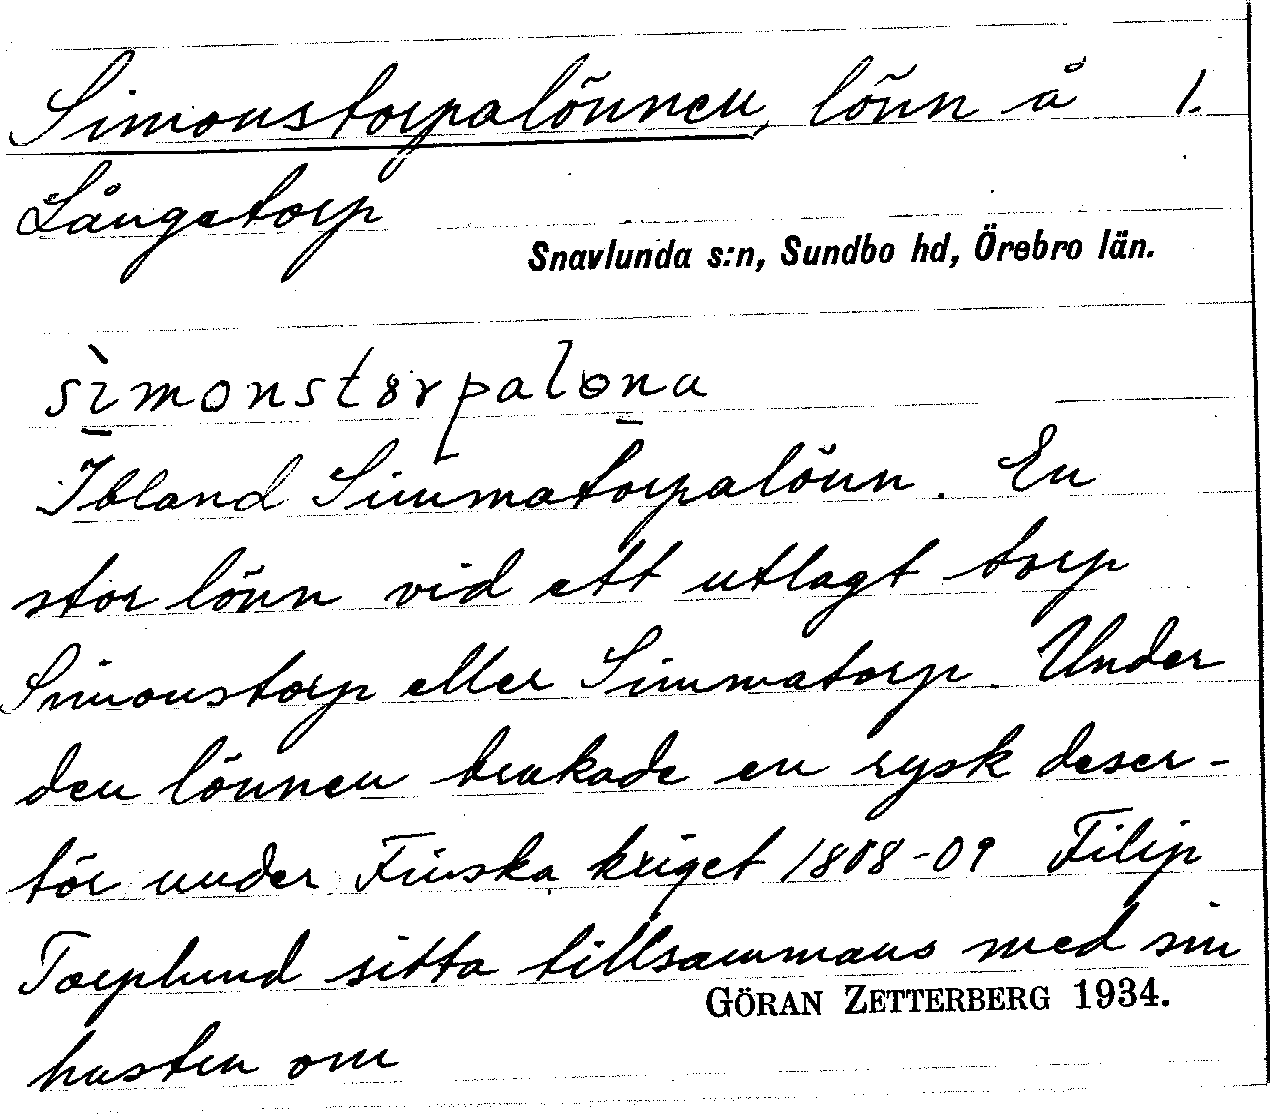 Simonstorpalönnen, lönn å 1.
Långetorp
Snavlunda s:n, Sundbo hd, Örebro län.
sìmonstɵrpalɵna
Ibland Simmatorpalönn. En
stor lönn vid ett utlagt torp
Simonstorp eller Simmatorp. Under
den lönnen brukade en rysk deser-
tör under Finska kriget 1808-09 Filip
Torplund sitta tillsammans med sin
hustru om
GÖRAN ZETTERBERG 1934.